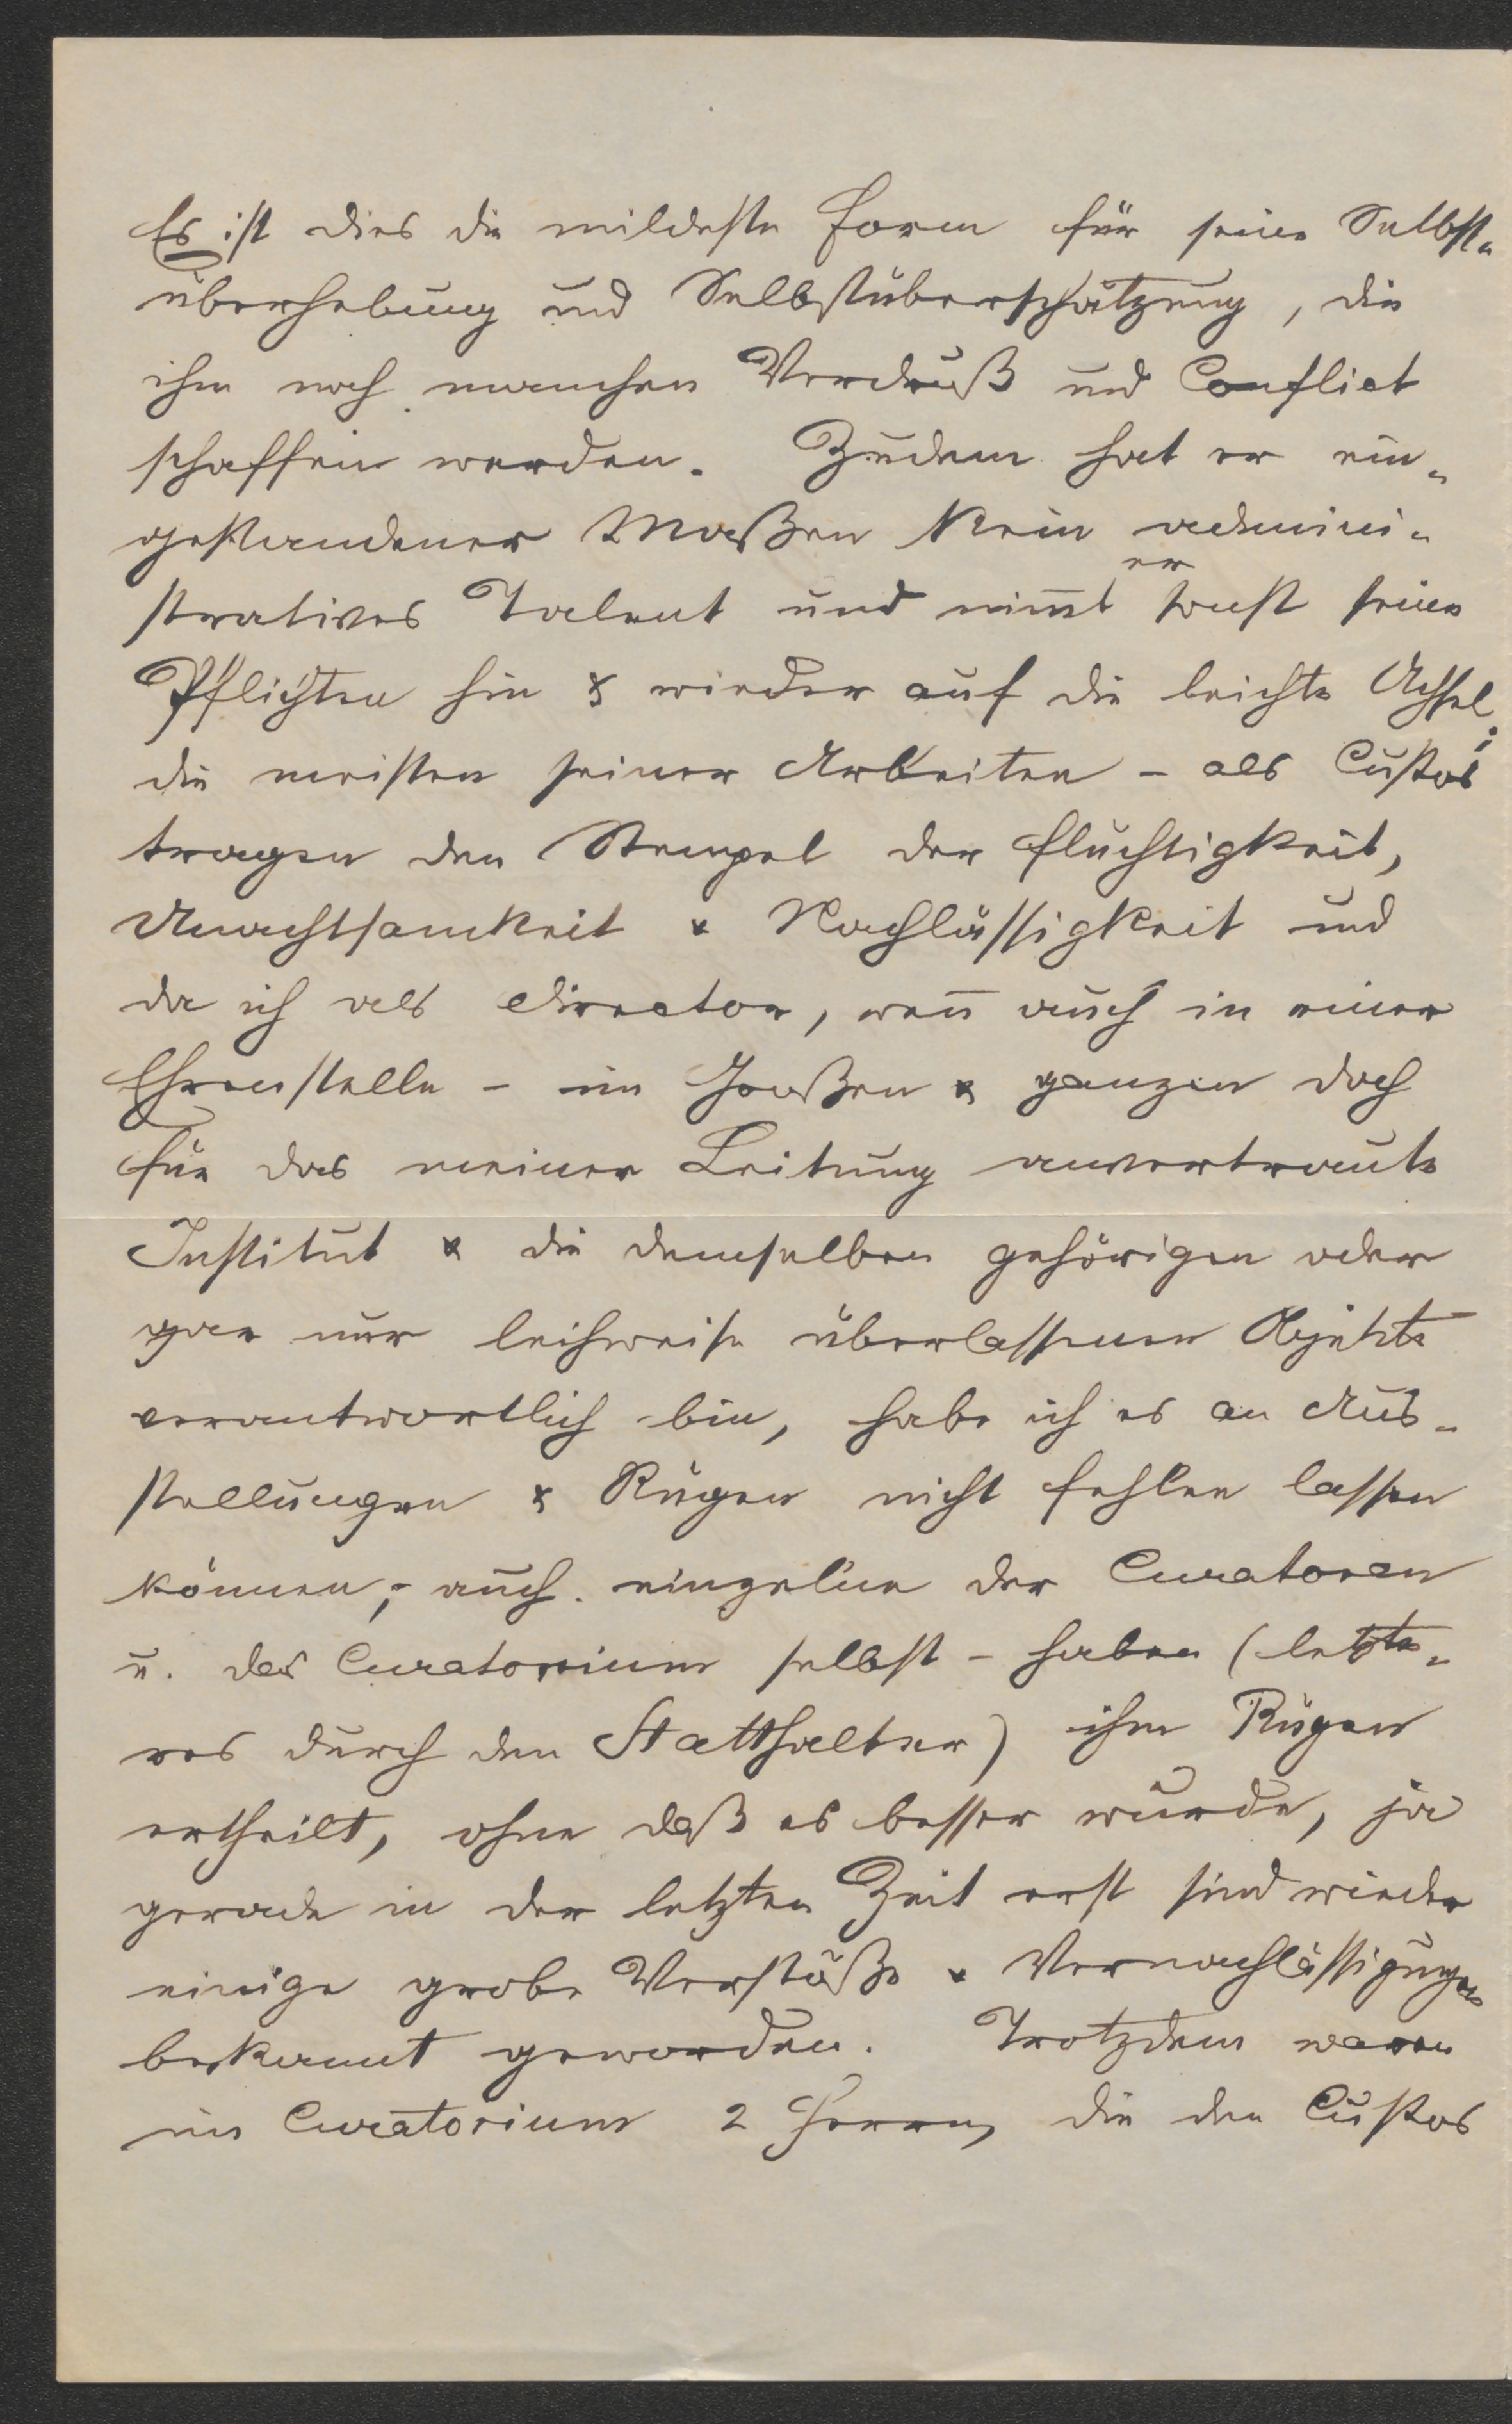 Es ist dies die mildeste Form für seine Selbst-
überhebung und Selbstüberschätzung, die
ihm noch manchen Verdruß und Conflict
schaffen werden. Zudem hat er ein-
gestandener Maßen kein admini-
stratives Talent und nim̄t er sonst seine
Pflichten hin & wieder auf die leichte Achsel;
die meisten seiner Arbeiten – als Custos
tragen den Stempel der Flüchtigkeit,
Unachtsamkeit & Nachlässigkeit und
da ich als Director, wen̄ auch in einer
Ehrenstelle – im Großen & ganzen doch
für das meiner Leitung anvertraute
Institut & die demselben gehörigen oder
gar nur leihweise überlassenen Objekte
verantwortlich bin, habe ich es an Aus-
stellungen & Rügen nicht fehlen lassen
können; auch einzelne der Curatoren
u. das Curatorium selbst – haben (letzte-
res durch den Statthalter) ihm Rügen
ertheilt, ohne daß es besser wurde, ja
gerade in der letzten Zeit erst sind wieder
einige grobe Verstöße & Vernachlässigungen
bekannt geworden. Trotzdem waren
im Curatorium 2 Herren, die den Custos